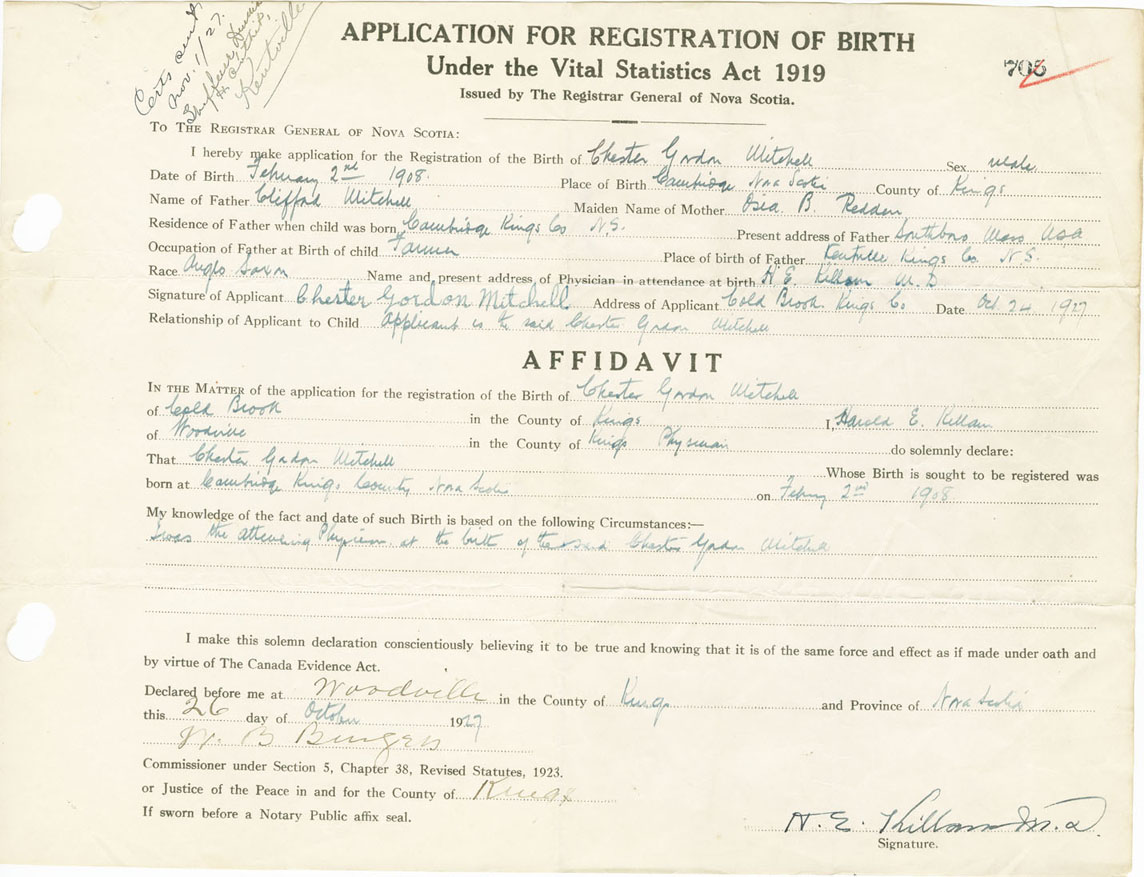 Certs sent
Nov. 1/27.
Kentville
APPLICATION FOR REGISTRATION OF BIRTH
Under the Vital Statistics Act 1919
Issued by The Registrar General of Nova Scotia.
708
To The Registrar General of Nova Scotia:
I hereby make application for the Registration of the Birth of Chester Gordon Mitchell Sex male
Date of Birth February 2nd 1908. Place of Birth Cambridge Nova Scotia County of Kings
Name of Father Clifford Mitchell Maiden Name of Mother Osea B. Redden
Residence of Father when child was born Cambridge Kings Co N.S. Present address of Father Southboro Mass USA
Occupation of Father at Birth of child Farmer Place of birth of Father Kentville Kings Co. N.S.
Race Anglo Saxon Name and present address of Physician in attendance at birth H. E. Killam M.D
Signature of Applicant Chester Gordon Mitchell Address of Applicant Cold Brook Kings Co Date Oct 24 1927
Relationship of Applicant to Child Applicant is the said Chester Gordon Mitchell
AFFIDAVIT
In the Matter of the application for the registration of the Birth of Chester Gordon Mitchell
of Cold Brook in the County of Kings I, Harold E. Killam
of Woodville in the County of Kings Physician do solemnly declare:
That Chester Gordon Mitchell Whose Birth is sought to be registered was
born at Cambridge Kings County Nova Scotia on February 2nd 1908
My knowledge of the fact and date of such Birth is based on the following Circumstances:—
I was the attending Physician at the birth of the said Chester Gordon Mitchell
I make this solemn declaration conscientiously believing it to be true and knowing that it is of the same force and effect as if made under oath and
by virtue of The Canada Evidence Act.
Declared before me at Woodville in the County of Kings and Province of Nova Scotia
this 26 day of October 1927
B Burgess
Commissioner under Section 5, Chapter 38, Revised Statutes, 1923.
or Justice of the Peace in and for the County of Kings
If sworn before a Notary Public affix seal.
H. E. Killam M.D.
Signature.